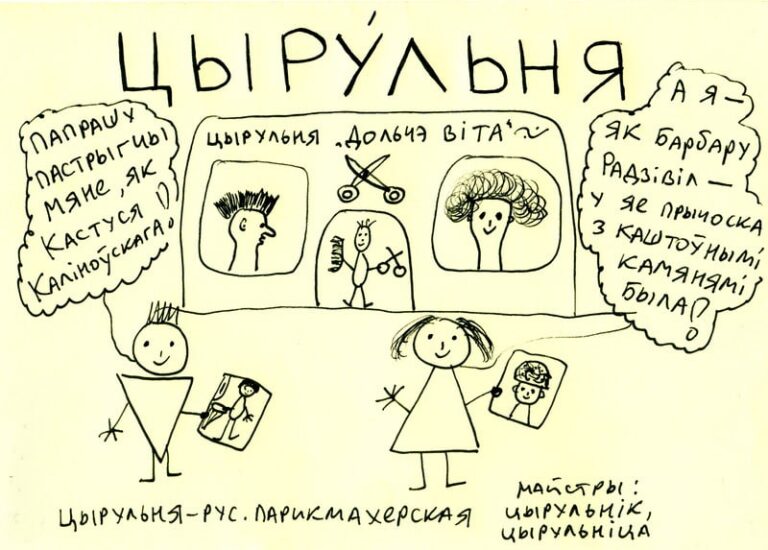 ЦЫРУ́ЛЬНЯ
ПАПРАШУ
ПАСТРЫГЧЫ
МЯНЕ, ЯК
КАСТУСЯ
КАЛІНОЎСКАГА!
ЦЫРУЛЬНЯ „ДОЛЬЧЭ ВІТА“
А Я —
ЯК БАРБАРУ
РАДЗІВІЛ —
У ЯЕ ПРЫЧОСКА
З КАШТОЎНЫМІ
КАМЯНЯМІ
БЫЛА!
ЦЫРУЛЬНЯ – РУС. ПАРИКМАХЕРСКАЯ
МАЙСТРЫ:
ЦЫРУЛЬНІК,
ЦЫРУЛЬНІЦА